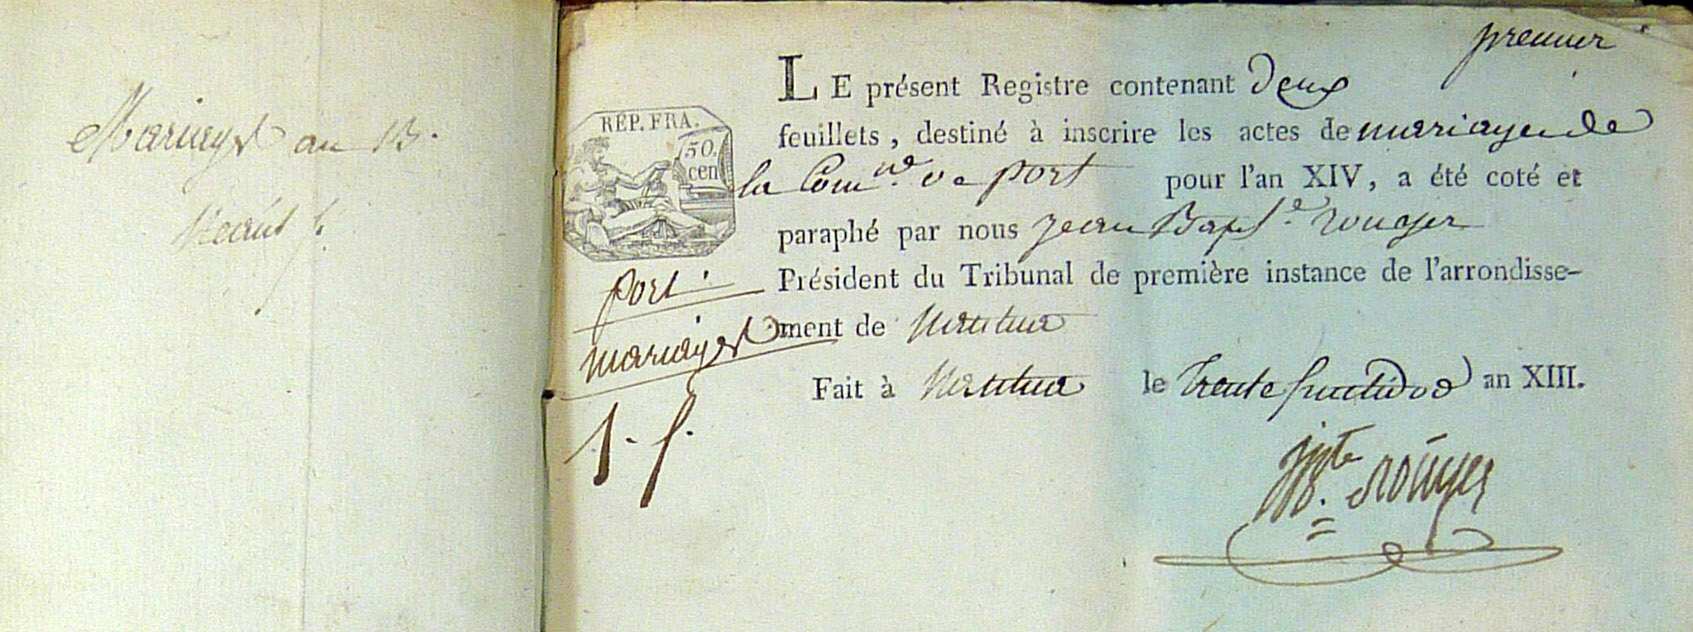 Mariages an 13.
Néant
premier
LE présent Registre contenant deux
feuillets, destiné à inscrire les actes de mariages de
la Comne de port pour l'an XIV, a été coté et
paraphé par nous jean Bapte rouyer
Président du Tribunal de première instance de l'arrondisse-
ment de Nantua
Fait à Nantua le trente fructidor an XIII.
RÉP. FRA.
50
cen
port
mariages
1. f.
JBte rouyer